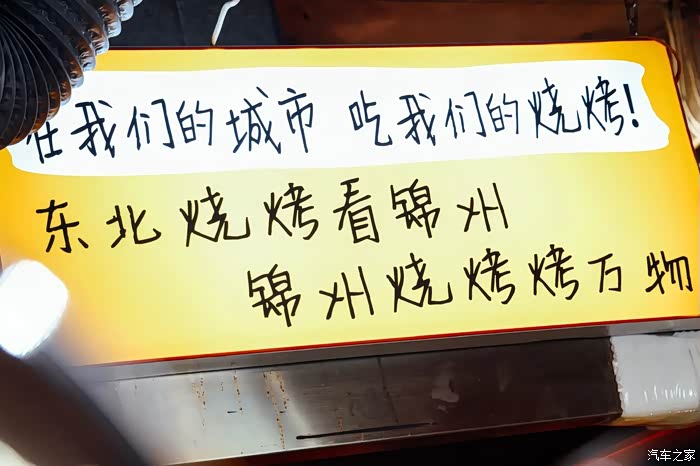 在我们的城市 吃我们的烧烤!
东北烧烤看锦州
锦州烧烤烤万物
汽车之家